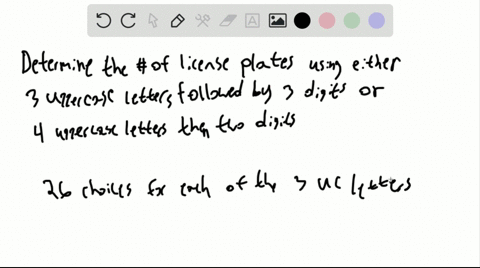 Determine the # of license plates using either
3 uppercase letters followed by 3 digits or
4 uppercase letters then two digits
26 choices for each of the 3 UC letters